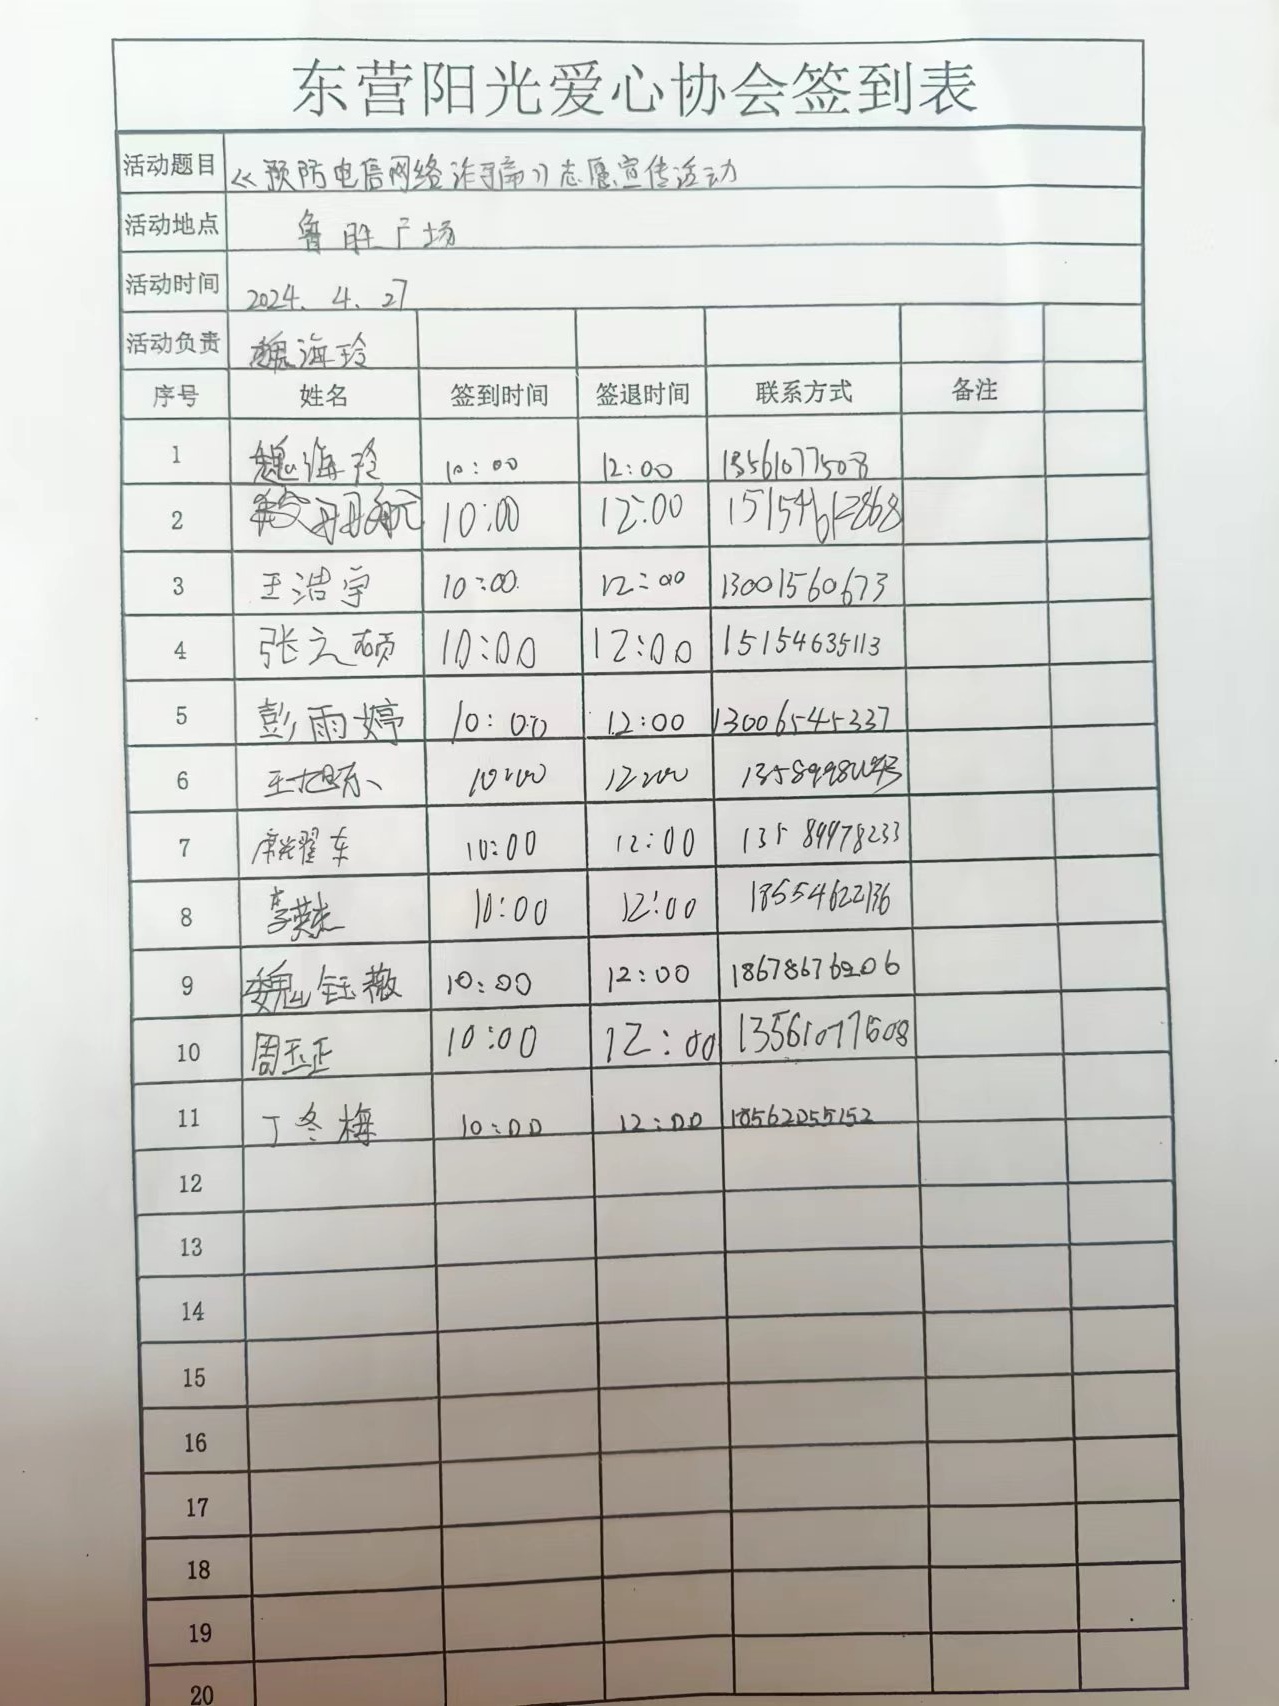 东营阳光爱心协会签到表
活动题目 《预防电信网络诈骗》志愿宣传活动
活动地点 鲁胜广场
活动时间 2024.4.27
活动负责 魏海玲
序号 姓名 签到时间 签退时间 联系方式 备注
1 魏海玲 10:00 12:00 13561077508
2 10:00 12:00 15154612868
3 王浩宇 10:00 12:00 13001560673
4 张立硕 10:00 12:00 15154635113
5 彭雨婷 10:00 12:00 13006545337
6 王旭东 10:00 12:00
7 耀东 10:00 12:00 13589978233
8 李英杰 10:00 12:00 18554622136
9 魏钰薇 10:00 12:00 18678676206
10 周玉正 10:00 12:00 13561077508
11 丁冬梅 10:00 12:00 18562055152
12
13
14
15
16
17
18
19
20